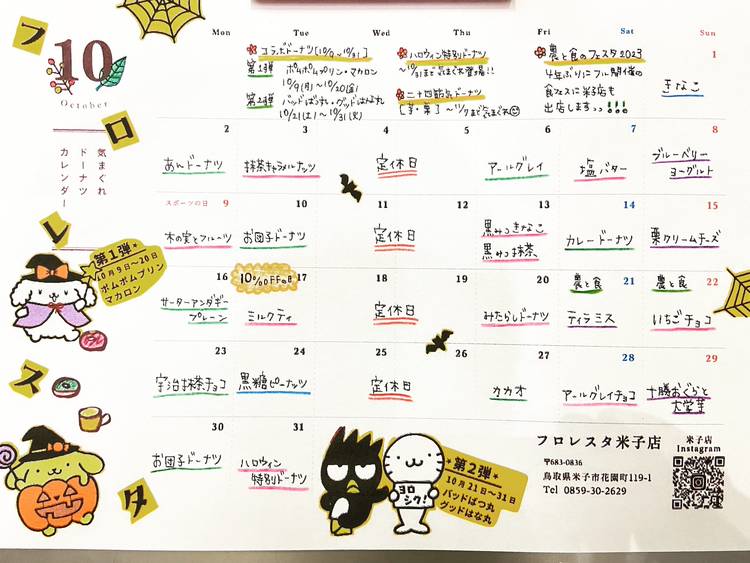 フロレスタ
10
October
気まぐれ
ドーナツ
カレンダー
Mon Tue Wed Thu Fri Sat Sun
コラボドーナツ[10/9~10/31]
第1弾 ポムポムプリン・マカロン
10/9(月)~10/20(金)
第2弾 バッドばつ丸・グッドはな丸
10/21(土)~10/31(火)
ハロウィン特別ドーナツ
~10/31まで気まぐれ登場!!
二十四節気ドーナツ
農と食のフェスタ2023
4年ぶりにフル開催の
食フェスに米子店も
出店します♪♪!!!
1
きなこ
2 3 4 5 6 7 8
あんドーナツ
抹茶キャラメルナッツ
定休日
アールグレイ
塩バター
ブルーベリー
ヨーグルト
スポーツの日 9 10 11 12 13 14 15
木の実とフルーツ
お団子ドーナツ
定休日
黒みつきなこ
黒みつ抹茶
カレードーナツ
栗クリームチーズ
16 17 18 19 20 21 22
サーターアンダギー
プレーン
10%OFFの日
ミルクティ
定休日
みたらしドーナツ
農と食
ティラミス
農と食
いちごチョコ
23 24 25 26 27 28 29
宇治抹茶チョコ
黒糖ピーナッツ
定休日
カカオ
アールグレイチョコ
十勝おぐらと
大学芋
30 31
お団子ドーナツ
ハロウィン
特別ドーナツ
第1弾
10月9日~20日
ポムポムプリン
マカロン
ヨロ
シク!
第2弾
10月21日~31日
バッドばつ丸
グッドはな丸
フロレスタ米子店
〒683-0836
鳥取県米子市花園町119-1
Tel 0859-30-2629
米子店
Instagram